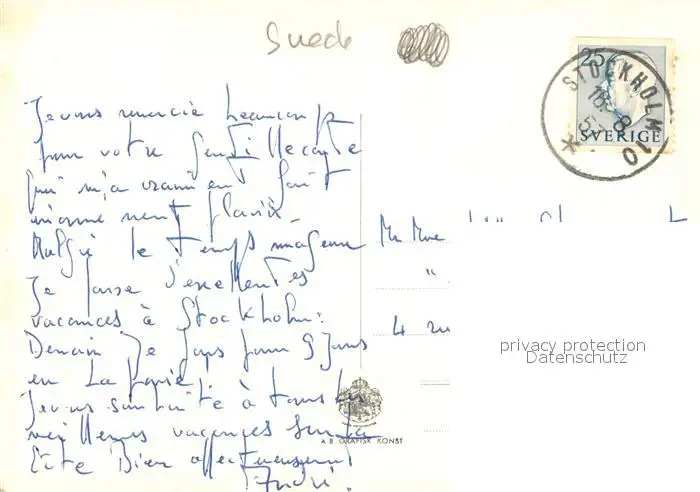 Suede
25
STOCKHOLM 10
SVERIGE
Je vous remercie beaucoup
pour votre gentille carte
qui m'a vraiment fait
énormement plaisir.
Malgré le temps nuageux
Je passe d'excellentes
vacances à Stockholm.
Demain Je pars pour 9 Jours
en Laponie.
Je vous souhaite à tous les
meilleures vacances
Bien affectueusement
André.
Mr Mme
"
4 ru
privacy protection
Datenschutz
A.B. GRAFISK KONST